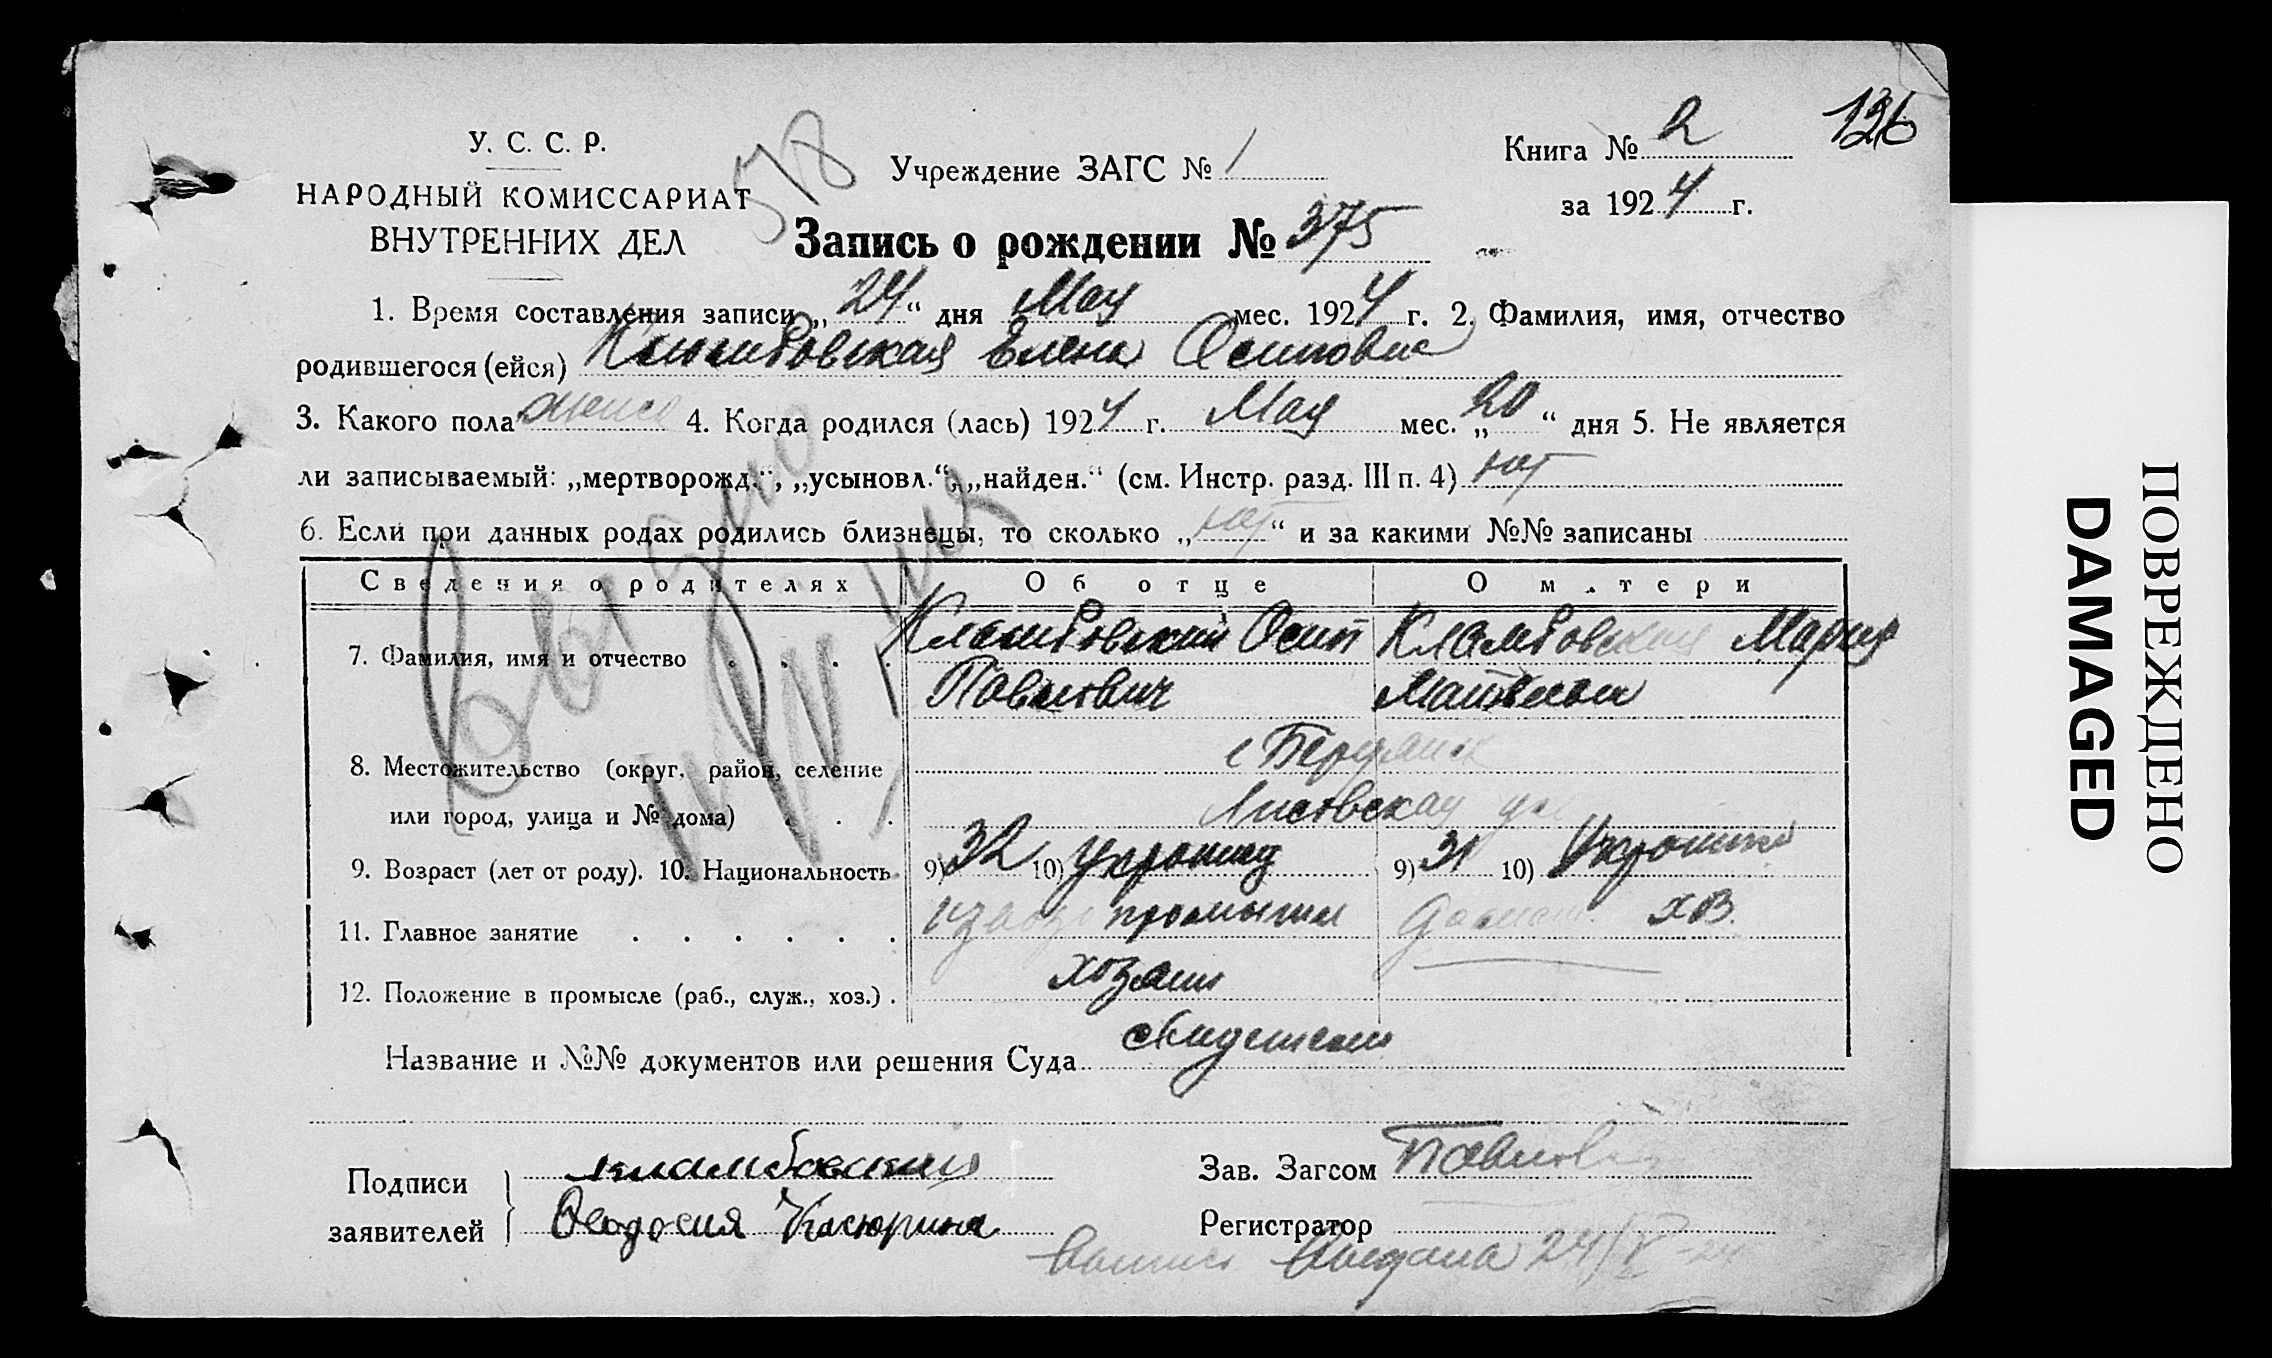 У. С. С. Р.
НАРОДНЫЙ КОМИССАРИАТ
ВНУТРЕННИХ ДЕЛ
578
Учреждение ЗАГС № 1
Книга № 2
136
за 1924 г.
Запись о рождении № 375
1. Время составления записи „24“ дня Мая мес. 1924 г. 2. Фамилия, имя, отчество
родившегося (ейся) Кламбовская Елена Осиповна
3. Какого пола женск 4. Когда родился (лась) 1924 г. Мая мес. „20“ дня 5. Не является
ли записываемый: „мертворожд.“, „усыновл.“, „найден.“ (см. Инстр. разд. III п. 4) нет
6. Если при данных родах родились близнецы, то сколько „нет“ и за какими №№ записаны
Сведения о родителях Об отце О матери
7. Фамилия, имя и отчество Кламбовский Осип Кламбовская Мария
Павлович Матвеевна
8. Местожительство (округ, район, селение г Бердянск
или город, улица и № дома) Листвекая ул
9. Возраст (лет от роду). 10. Национальность 9) 32 10) украинец 9) 31 10) Украинка
11. Главное занятие промысел домаш. хоз.
12. Положение в промысле (раб., служ., хоз.) хозяин
Название и №№ документов или решения Суда свидетели
Подписи заявителей
Кламбовский
Феодосия Касюрина
Зав. Загсом Павлов
Регистратор
выдана 24/V-24
ПОВРЕЖДЕНО
DAMAGED